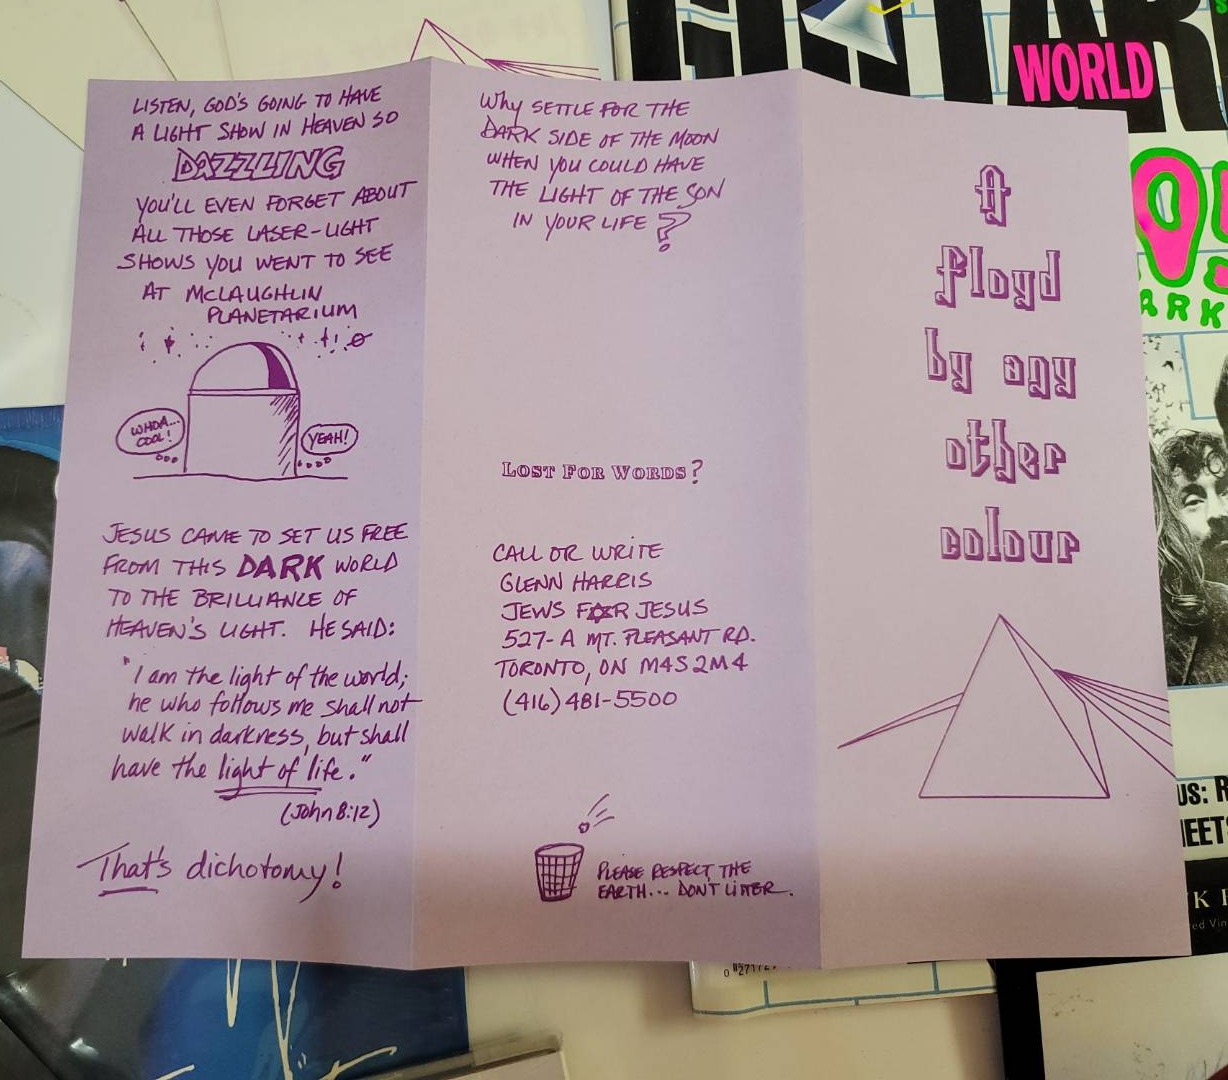 LISTEN, GOD'S GOING TO HAVE
A LIGHT SHOW IN HEAVEN SO
DAZZLING
YOU'LL EVEN FORGET ABOUT
ALL THOSE LASER-LIGHT
SHOWS YOU WENT TO SEE
AT MCLAUGHLIN
PLANETARIUM
WHOA...
COOL!
YEAH!
JESUS CAME TO SET US FREE
FROM THIS DARK WORLD
TO THE BRILLIANCE OF
HEAVEN'S LIGHT. HE SAID:
"I am the light of the world;
he who follows me shall not
walk in darkness, but shall
have the light of life."
(John 8:12)
That's dichotomy!
Why SETTLE FOR THE
DARK SIDE OF THE MOON
WHEN YOU COULD HAVE
THE LIGHT OF THE SON
IN YOUR LIFE?
LOST FOR WORDS?
CALL OR WRITE
GLENN HARRIS
JEWS F✡R JESUS
527-A MT. PLEASANT RD.
TORONTO, ON M4S 2M4
(416) 481-5500
PLEASE RESPECT THE
EARTH... DON'T LITTER.
A
floyd
by any
other
colour
GUITAR
WORLD
ARK
US: R
MEETS